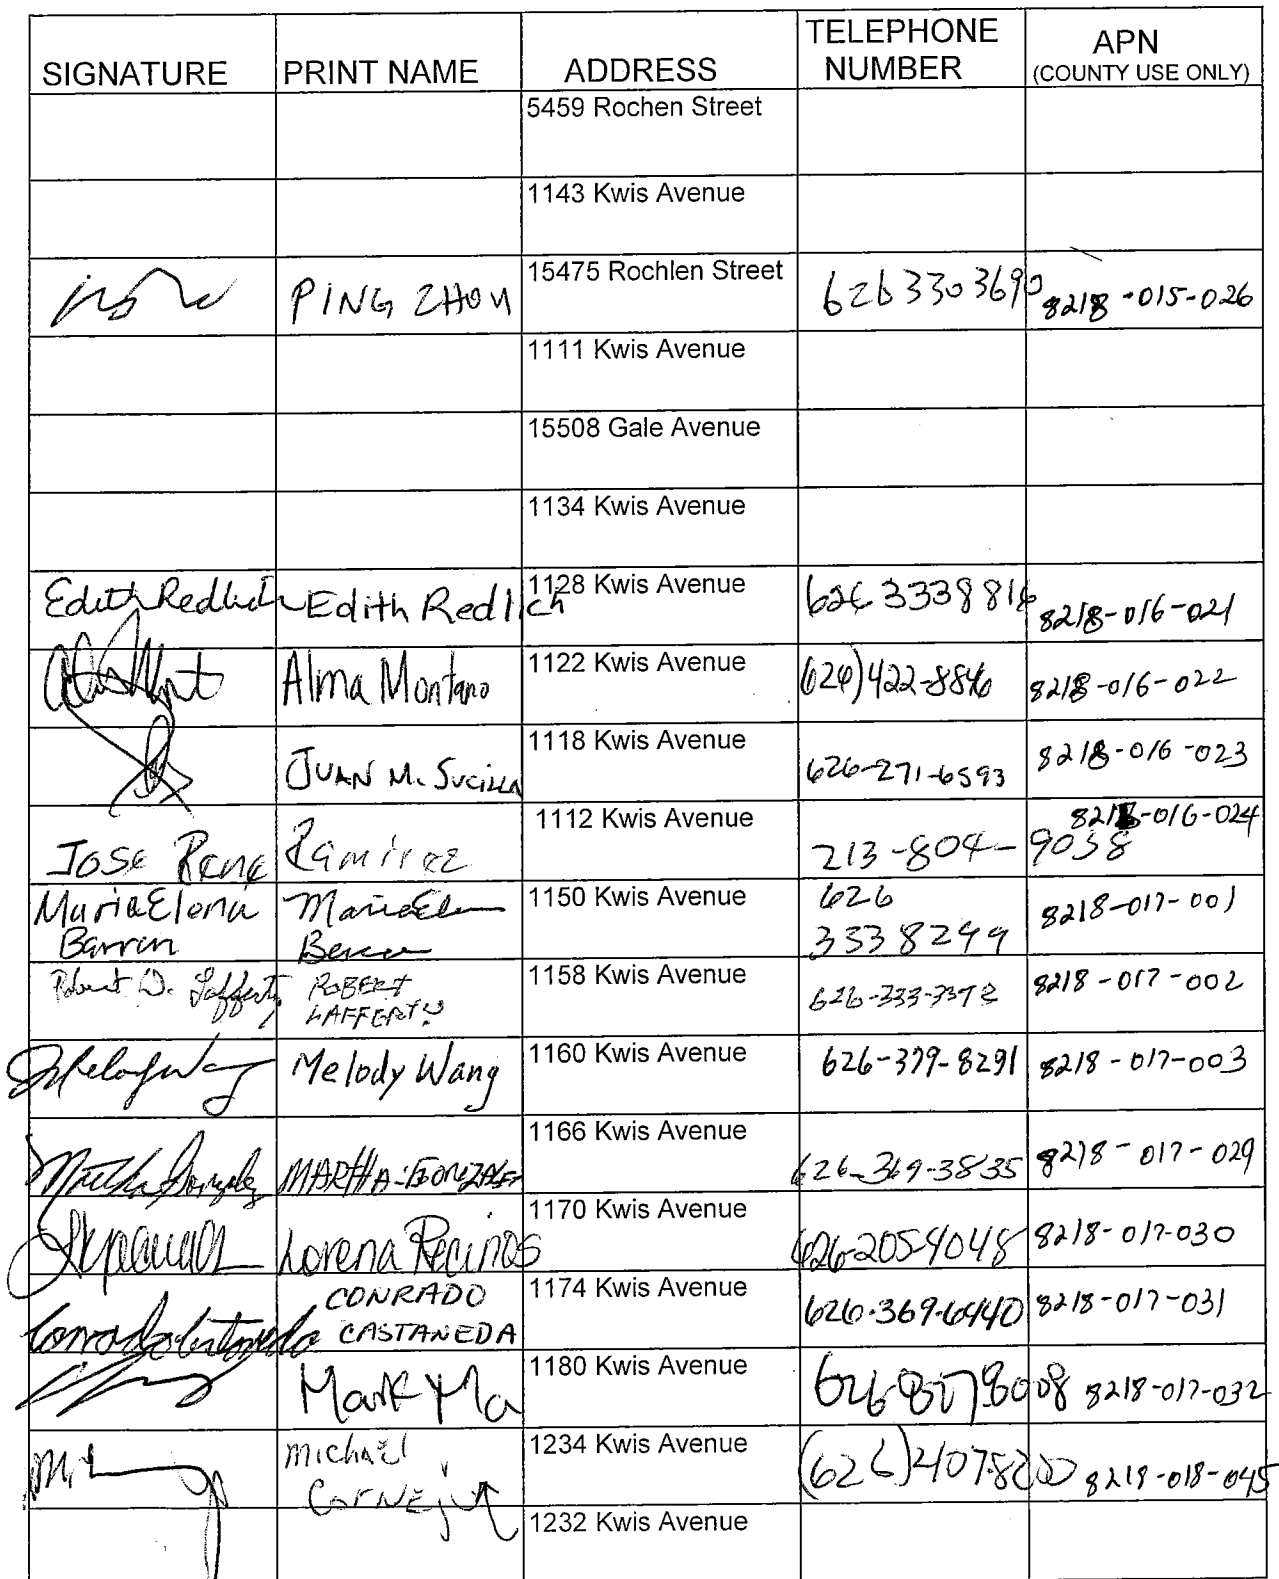 SIGNATURE PRINT NAME ADDRESS TELEPHONE NUMBER APN (COUNTY USE ONLY)
5459 Rochen Street
1143 Kwis Avenue
PING ZHOU 15475 Rochlen Street 626 330 3690 8218-015-026
1111 Kwis Avenue
15508 Gale Avenue
1134 Kwis Avenue
Edith Redlich Edith Redlich 1128 Kwis Avenue 626 333 8816 8218-016-021
Alma Montano 1122 Kwis Avenue (626) 422-8846 8218-016-022
JUAN M. SUCILLA 1118 Kwis Avenue 626-271-6593 8218-016-023
Jose Rene Ramirez 1112 Kwis Avenue 213-804-9038 8218-016-024
Maria Elena Barron 1150 Kwis Avenue 626 333 8299 8218-017-001
Robert D. Lafferty ROBERT LAFFERTY 1158 Kwis Avenue 626-333-3372 8218-017-002
Melody Wang Melody Wang 1160 Kwis Avenue 626-379-8291 8218-017-003
Martha Gonzalez MARTHA GONZALEZ 1166 Kwis Avenue 626-369-3835 8218-017-029
Lorena Recinos 1170 Kwis Avenue 626-205-4048 8218-017-030
Conrado Castaneda CONRADO CASTANEDA 1174 Kwis Avenue 626-369-6440 8218-017-031
Mark Ma 1180 Kwis Avenue 626 807 8008 8218-017-032
Michael Cornejo 1234 Kwis Avenue (626) 407-8200 8218-018-045
1232 Kwis Avenue